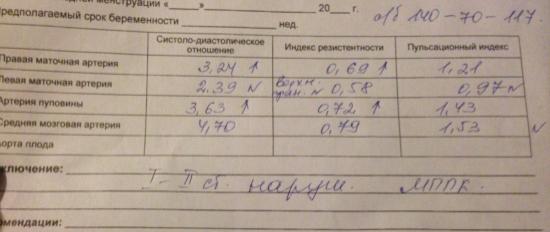 дней менструации «____»____________ 20___ г.
Предполагаемый срок беременности ____________ нед.
140-70-117.
Систоло-диастолическое отношение Индекс резистентности Пульсационный индекс
Правая маточная артерия 3,24 ↑ 0,69 ↑ 1,21
Левая маточная артерия 2.39 N верхн. гран. N 0,58 0,97 N
Артерия пуповины 3,63 ↑ 0,72 ↑ 1,43
Средняя мозговая артерия 4,70 0,79 1,53 N
Аорта плода
ключение: I-II ст. наруш. МППК.
мендации: